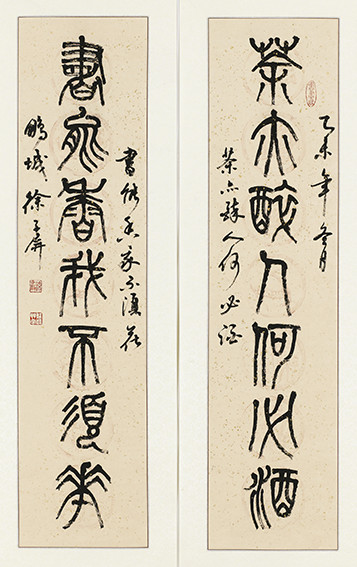 乙未年冬月
茶亦醉人何必酒
茶亦醉人何必酒
書能香我不須花
書能香我不須華
鵬城徐